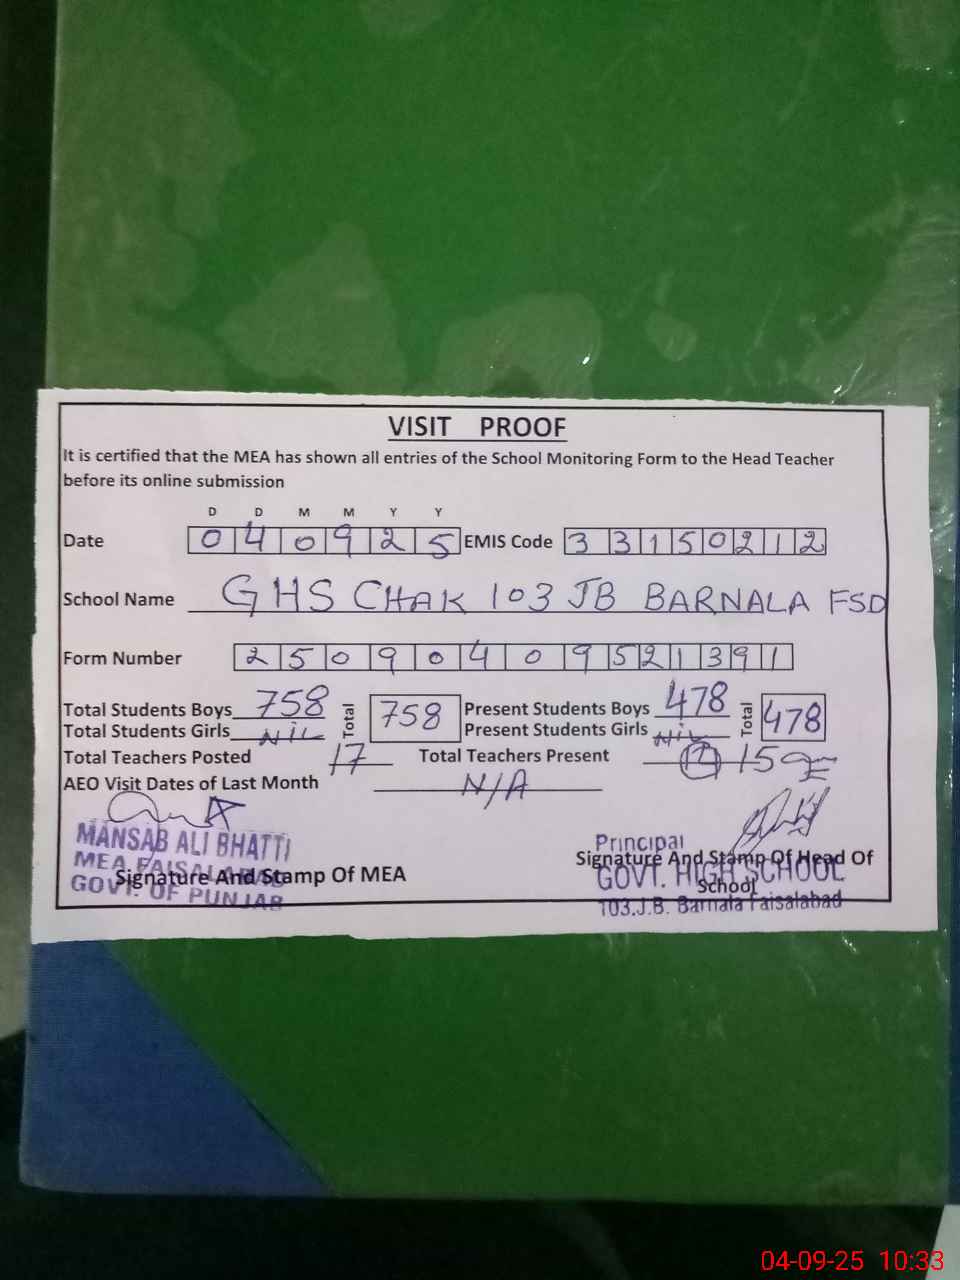 VISIT PROOF
It is certified that the MEA has shown all entries of the School Monitoring Form to the Head Teacher
before its online submission
D D M M Y Y
Date 0 4 0 9 2 5 EMIS Code 3 3 1 5 0 2 1 2
School Name GHS CHAK 103 JB BARNALA FSD
Form Number 2 5 0 9 0 4 0 9 5 2 1 3 9 1
Total Students Boys 758 Total 758 Present Students Boys 478 Total 478
Total Students Girls NIL Present Students Girls NIL
Total Teachers Posted 17 Total Teachers Present 15
AEO Visit Dates of Last Month N/A
MANSAB ALI BHATTI
MEA FAISALABAD
GOVT. OF PUNJAB
Signature And Stamp Of MEA
Principal
Signature And Stamp Of Head Of
School
GOVT. HIGH SCHOOL
103.J.B. Barnala Faisalabad
04-09-25 10:33